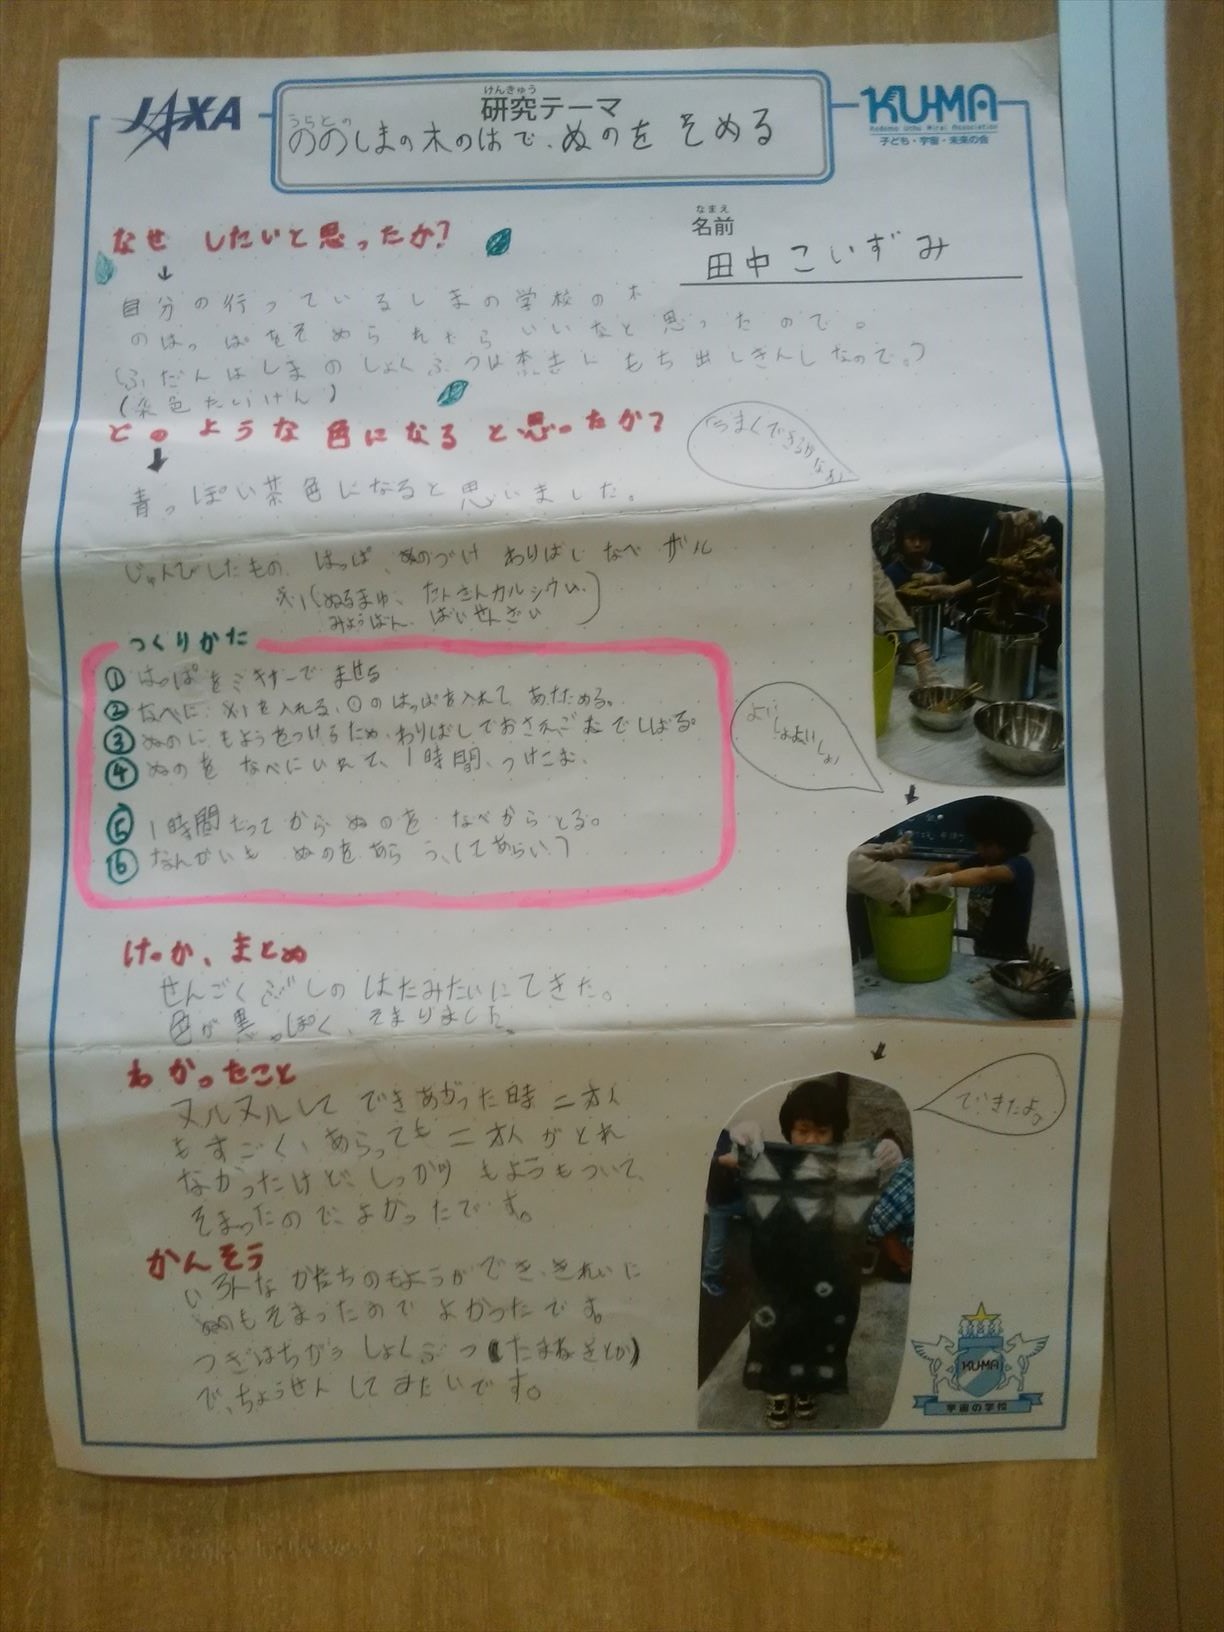 JAXA
けんきゅう
研究テーマ
KU-MA
Kodomo Uchu Mirai Association
子ども・宇宙・未来の会
ののしまの木のはで、ぬのをそめる
なまえ
名前
田中こいずみ
なぜ したいと思ったか?
↓
自分の行っているしまの学校の木
のはっぱをそめられたらいいなと思ったので。
(ふだんはしまのしょくぶつは もち出しきんしなので。)
(染色たいけん)
どのような色になると思ったか?
うまくできるかなぁ
青っぽい茶色になると思いました。
じゅんびしたもの はっぱ、ぬの わりばし なべ ザル
※1(ぬるまゆ、たんさんカルシウム、
みょうばん、ばいせんざい)
つくりかた
① はっぱをミキサーでませる
② なべに ※1を入れる、①のはっぱを入れて あたためる。
③ ぬのにもようをつけるため、わりばしでおさえごむでしばる。
④ ぬのを なべにいれて、1時間、つけこむ、
よいしょよいしょ
⑤ 1時間たってから ぬのを なべからとる。
⑥ なんかいも ぬのをあらう、(てあらい)
けっか、まとめ
せんごくぶしの はたみたいにできた。
色が黒っぽく、そまりました。
わかったこと
ヌルヌルして できあがった時ニオイ
もすごく、あらってもニオイがとれ
なかったけど、しっかり もようもついて、
そまったのでよかったです。
できたよ
かんそう
いろんなかたちのもようができ、きれいに
ぬのもそまったのでよかったです。
つぎはちがうしょくぶつ(たまねぎとか)
で、ちょうせんしてみたいです。
KU-MA
宇宙の学校